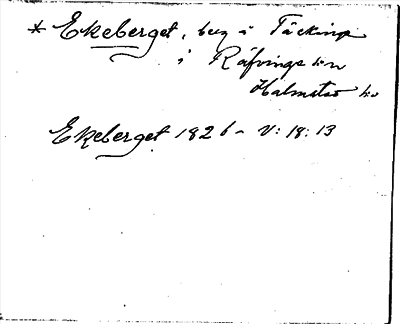 * Ekeberget, berg i Täckinge
i Räfvinge sn
Halmstad hd
Ekeberget 1826 - V: 18: 13